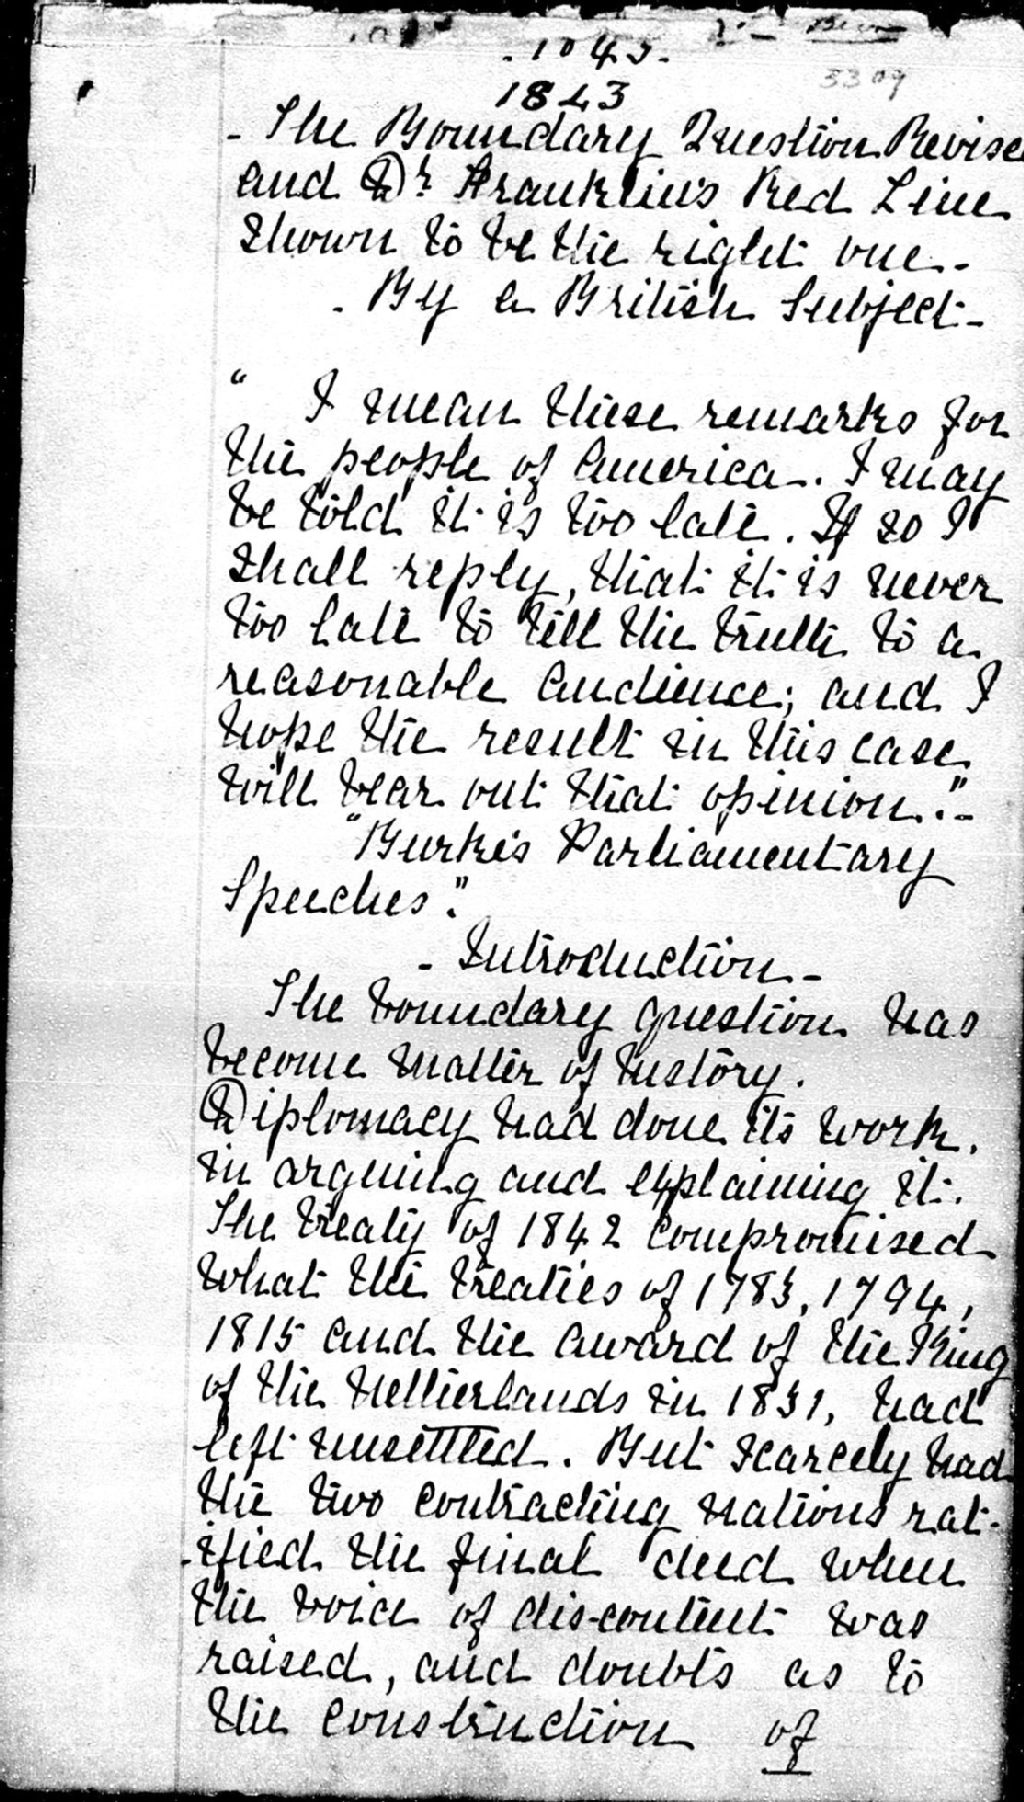 - 1045 -
3309
1843
- The Boundary Question Revise
and Dr Franklin's Red Line
shown to be the right one -
- By a British Subject -
" I mean these remarks for
the people of America. I may
be told it is too late. If so I
shall reply, that it is never
too late to tell the truth to a
reasonable audience; and I
hope the result in this case
will bear out that opinion." -
"Burke's Parliamentary
Speeches".
- Introduction -
The boundary question has
become matter of history.
Diplomacy had done its work.
in arguing and explaining it.
The treaty of 1842 compromised
what the treaties of 1783, 1794,
1815 and the award of the King
of the Netherlands in 1831, had
left unsettled. But scarcely had
the two contracting nations rat-
-ified the final deed when
the voice of dis-content was
raised, and doubts as to
the construction of